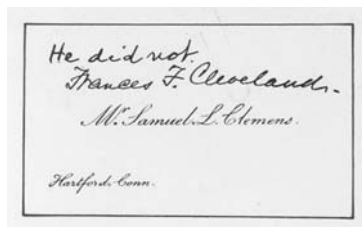 He did not.
Frances F. Cleveland.
Mr. Samuel L. Clemens.
Hartford. Conn.